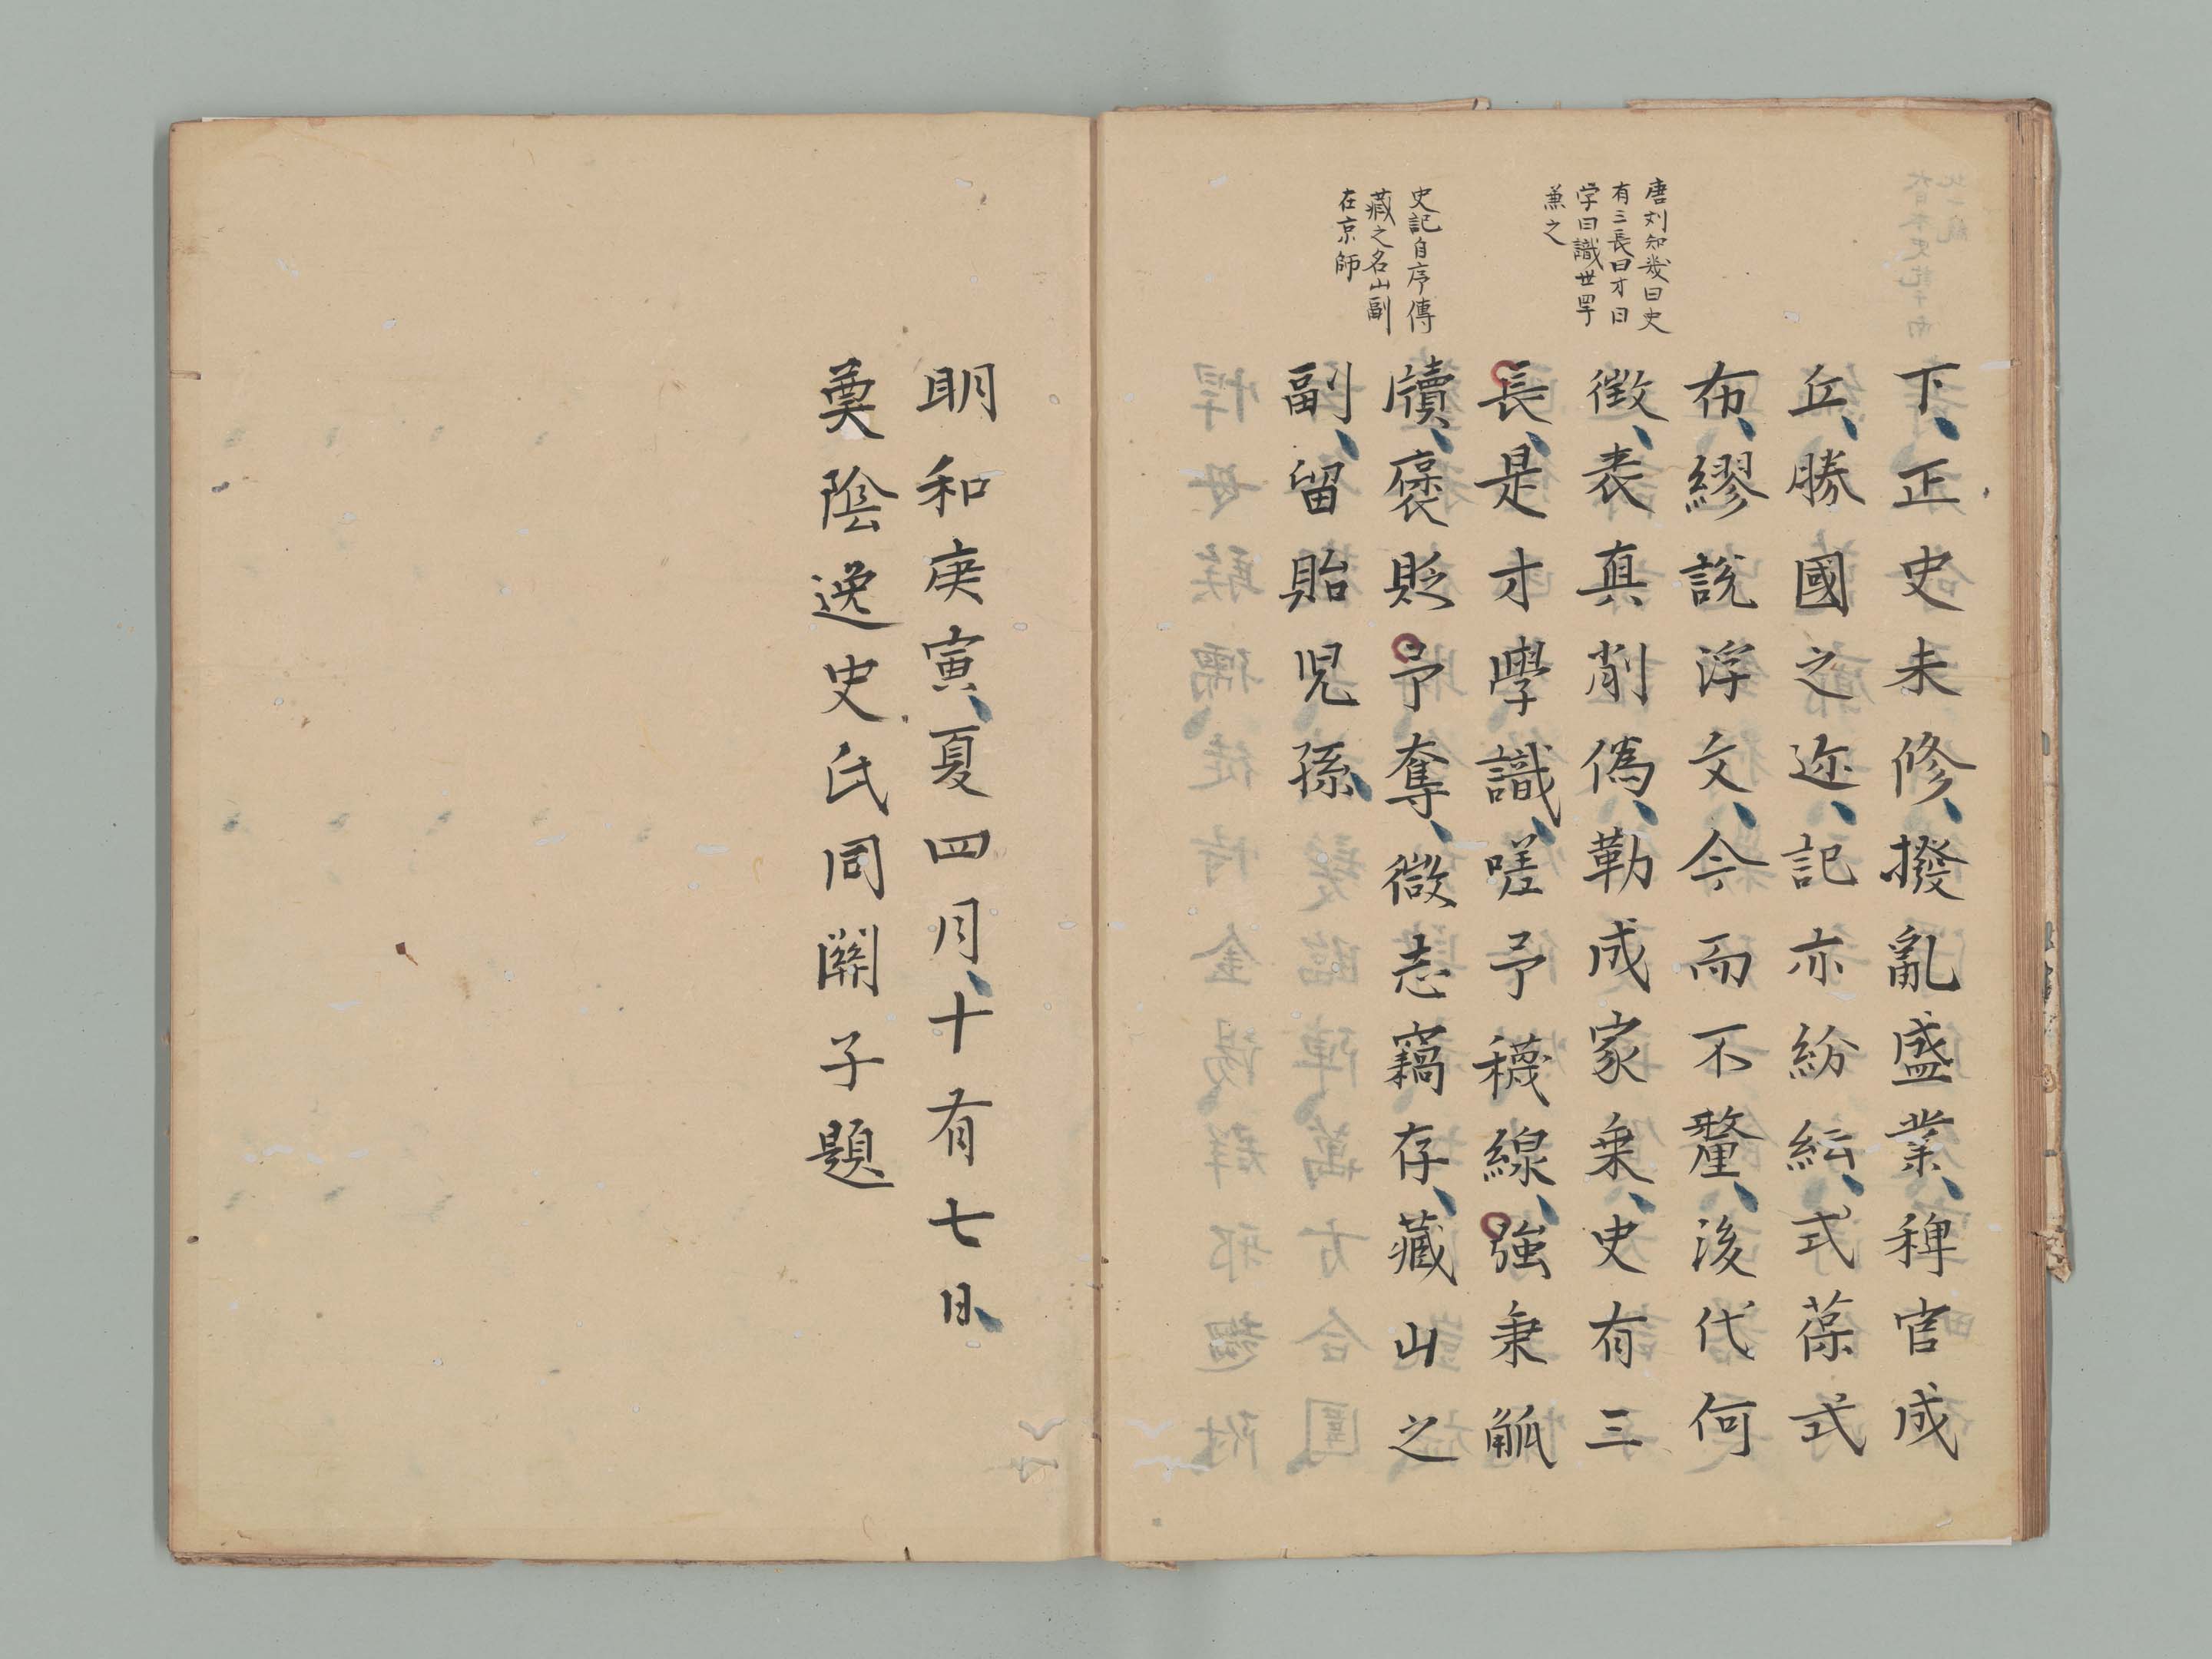 唐刘知幾曰史
有三長曰才曰
学曰識世罕
兼之
史記自序傳
藏之名山副
在京師
下、正史未修、撥亂盛業、稗官成
丘、勝國之迹、記亦紛紜、式葆式
布、繆說浮文、今而不釐、後代何
徴、表真削僞、勒成家乗、史有三
長、是才學識、嗟予襪線、強秉觚
牘、褒貶予奪、微志竊存、藏山之
副、留貽児孫、
明和庚寅、夏四月、十有七日、
奠陰逸史氏同關子題